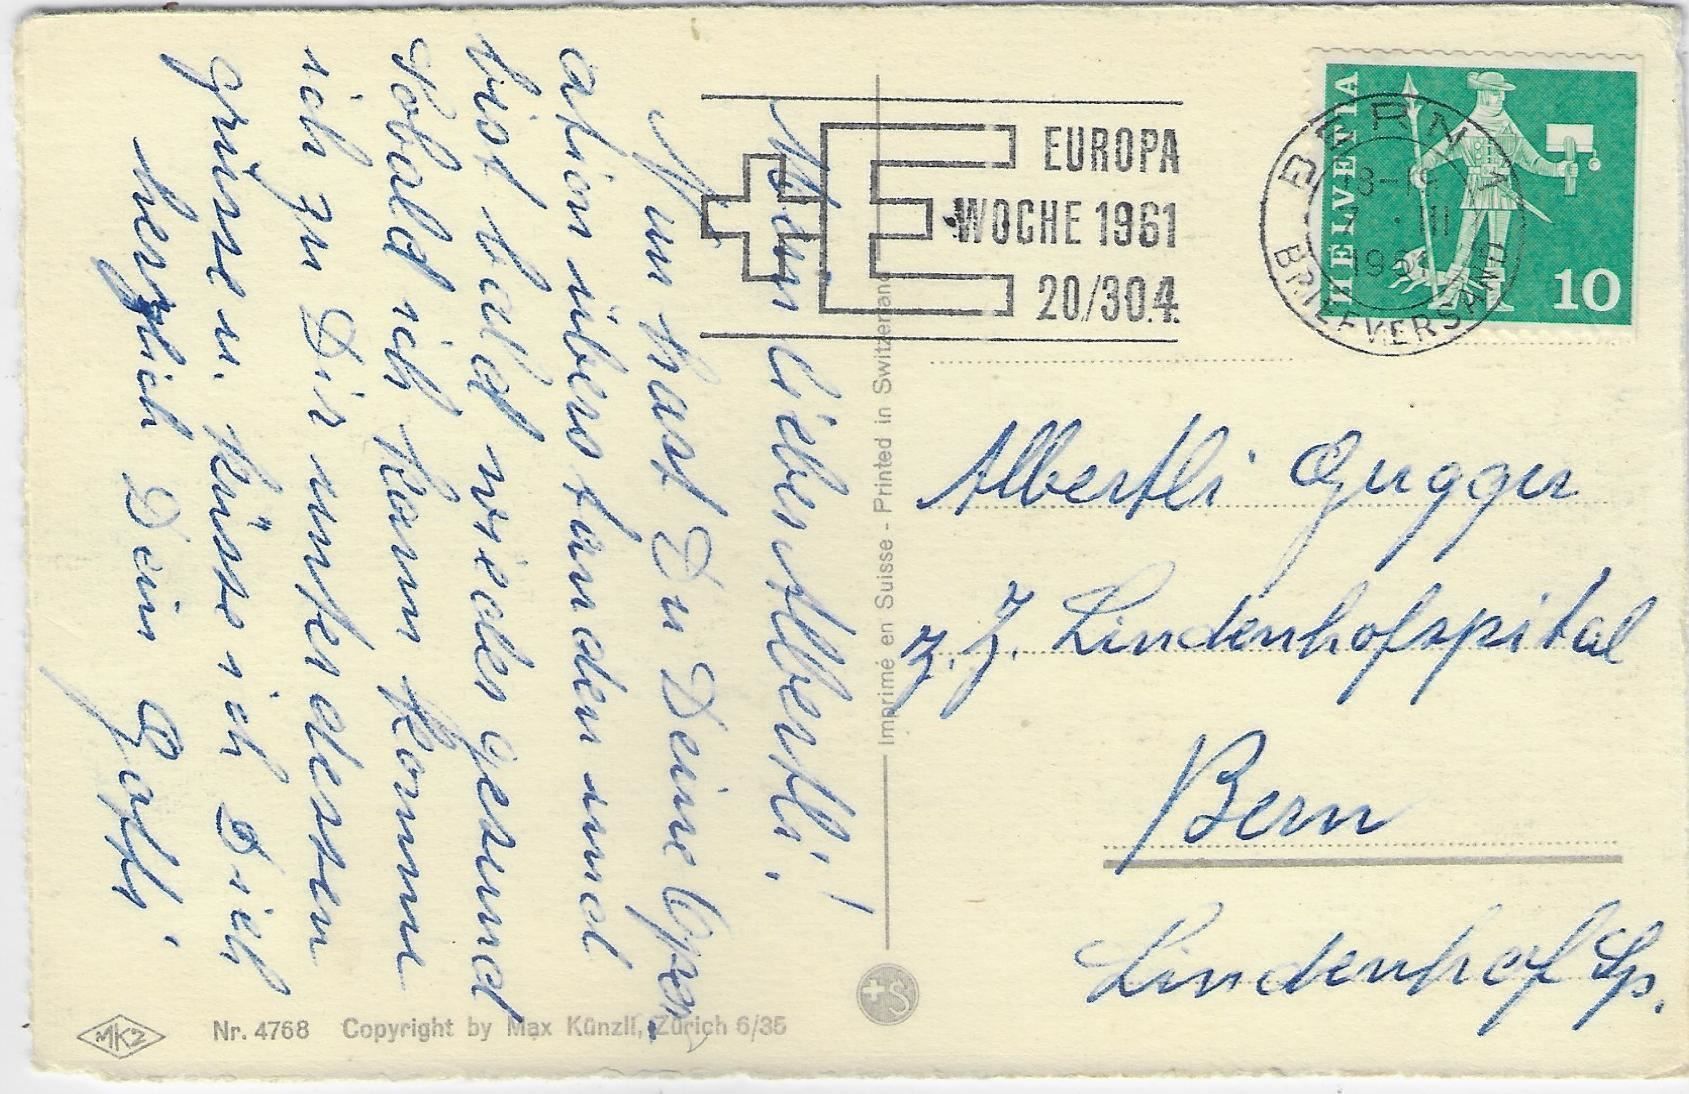 Mein lieber Albertli!
Nun hast Du Deine Oper-
ation überstanden und
bist bald wieder gesund
Sobald ich kann komme
ich zu Dir unterdessen
grüsse u. küsse ich Dich
herzlich Dein Gotti
EUROPA
WOCHE 1961
20/30.4.
BERN 1
BRIEFVERSAND
III
1961
HELVETIA
10
Albertli Gugger
z. Z. Lindenhofspital
Bern
Lindenhof Sp.
Imprimé en Suisse - Printed in Switzerland
MKZ
Nr. 4768 Copyright by Max Künzli, Zürich 6/35
S